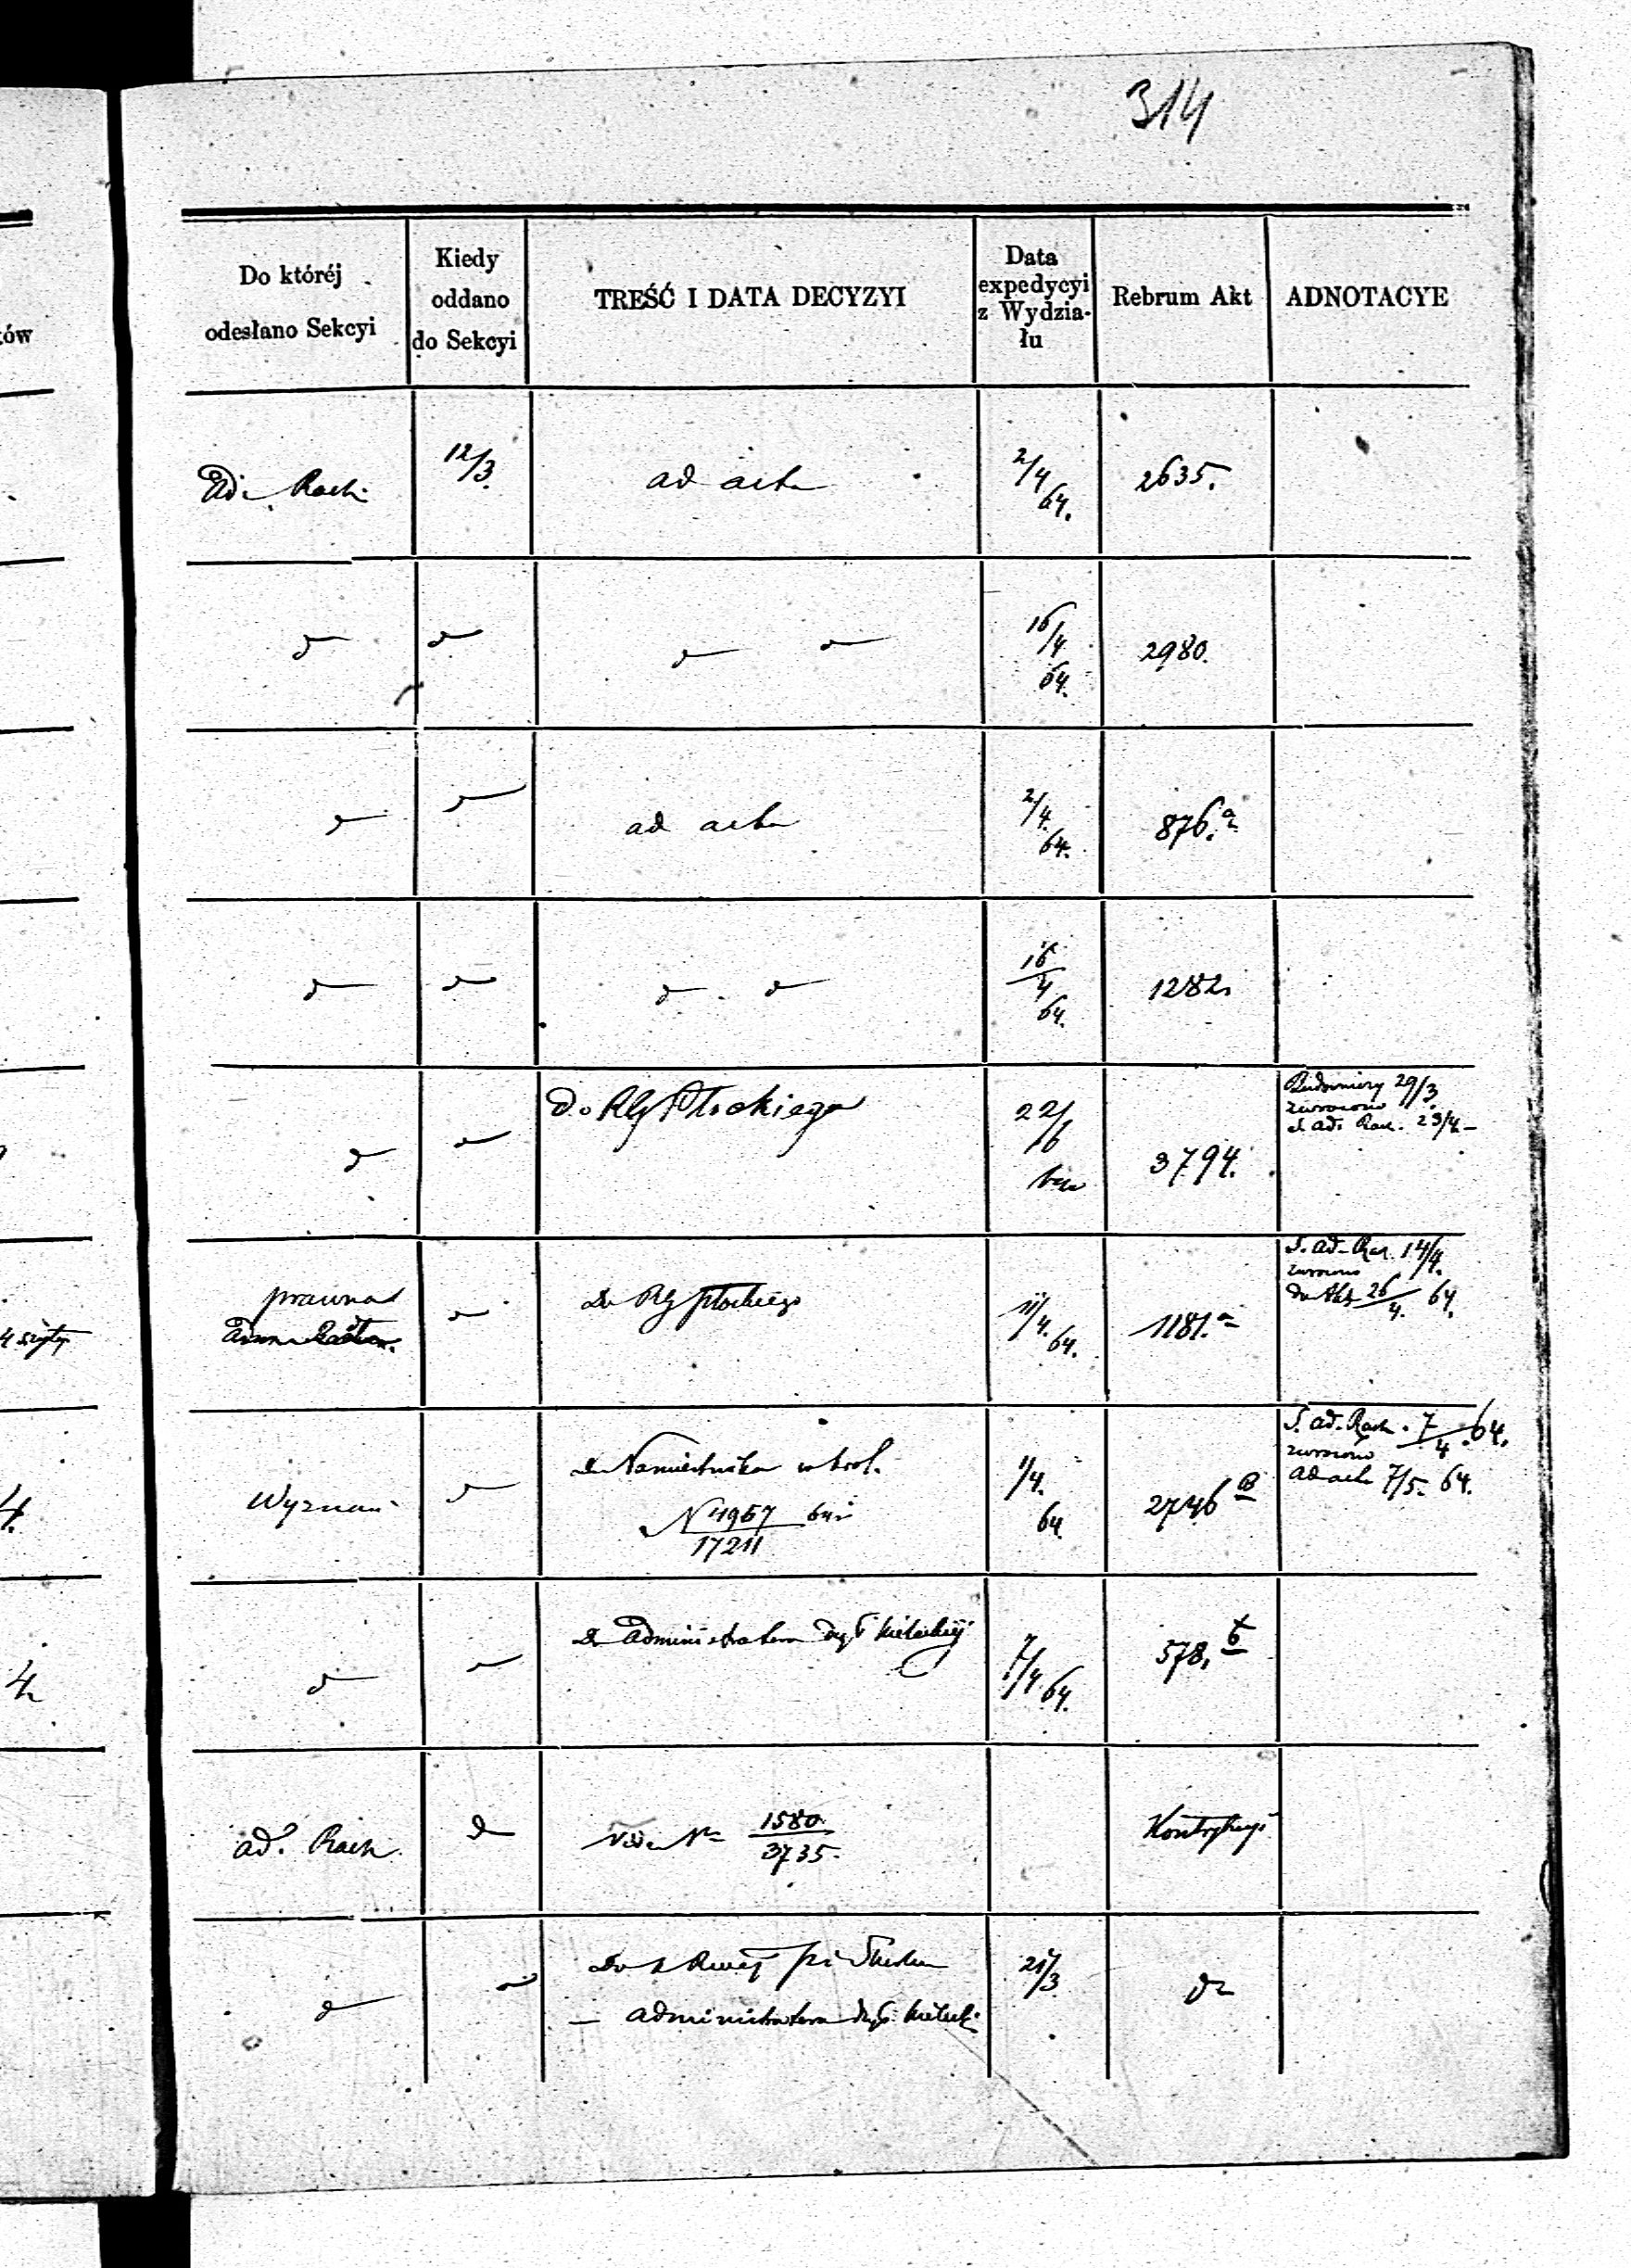 314
Do któréj
odesłano Sekcyi
Kiedy
oddano
do Sekcyi
TREŚĆ I DATA DECYZYI
Data
expedycyi
z Wydzia-
łu
Rebrum Akt
ADNOTACYE
ów
Ad. Rach.
12/3.
ad acta
2/4
64.
2635.
16/4
64.
2980.
ad acta
2/4.
64.
876.a
16
4
64.
1282.
Do RG Płockiego
22/6
3794.
29/3
zwrócono
S. ad. Rach. 23/4
prawna
Do RG Płockiego
11/4.
64.
1181.a
S. ad. Rach. 14/4.
zwrócono
do Akt 26/4. 64.
Wyznań
Do Namiestnika w Król.
N 4967
17211
1/4.
64
2746 B
S. ad. Rach. 7/4. 64.
zwrócono
ad acta 7/5. 64.
Do Administratora Dyec. Kieleckiej
7/4 64.
578, b
ad. Rach.
Vide No 1580
3735.
Do
Administratora Dyec. Kieleck.
21/3